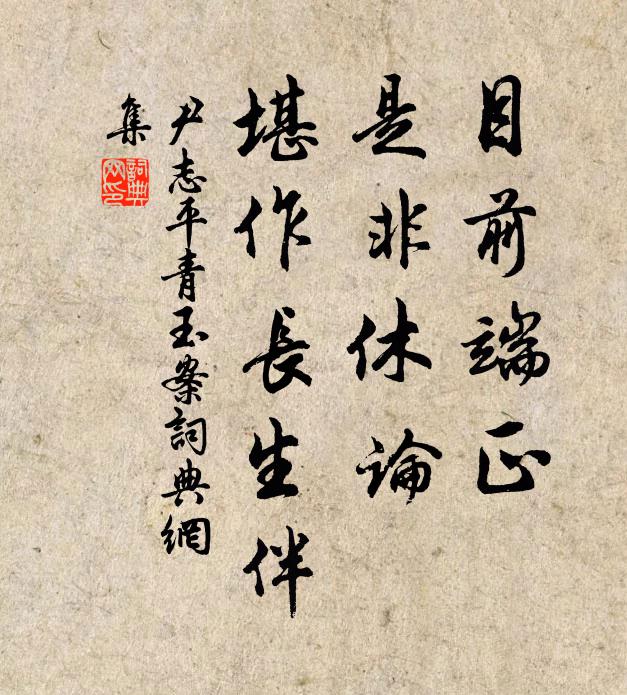 目前端正
是非休论
堪作長生伴
尹志平青玉案詞典網
集
詞典網印